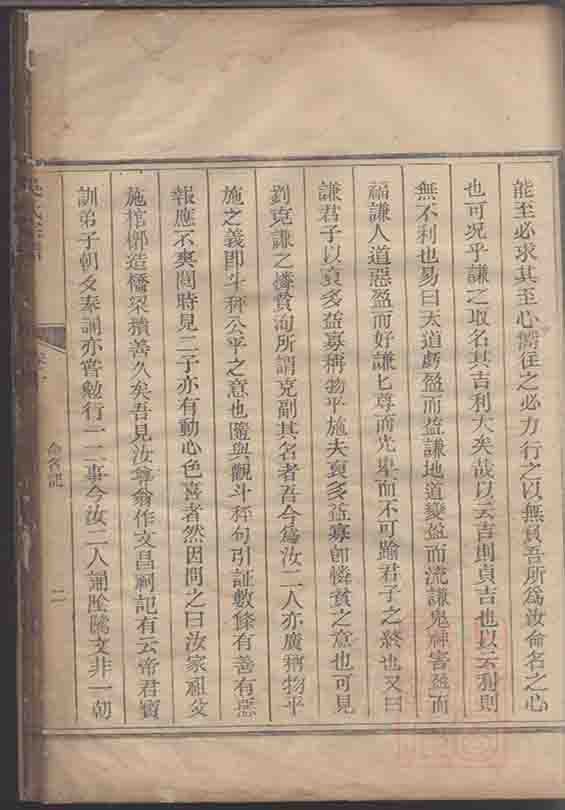 能至必求其至心嚮往之必力行之以無負吾所為汝命名之心
也可况乎謙之取名其吉利大矣哉以云吉則貞吉也以云利則
無不利也易曰天道虧盈而益謙地道變盈而流謙鬼神害盈而
福謙人道惡盈而好謙匕尊而光卑而不可踰君子之終也又曰
謙君子以裒多益寡稱物平施夫裒多益寡即憐貧之意也可見
劉克謙之憐貧洵所謂克副其名者吾今為汝二人亦廣稱物平
施之義即斗秤公平之意也隨與觀斗秤句引証數條有善有惡
報應不爽閱時見二子亦有動心色喜者然因問之曰汝家祖父
施棺槨造橋梁積善久矣吾見汝尊翁作文昌祠記有云帝君寶
訓弟子朝夕奉誦亦嘗勉行一二事今汝二人誦陰隲文非一朝
命名記
二